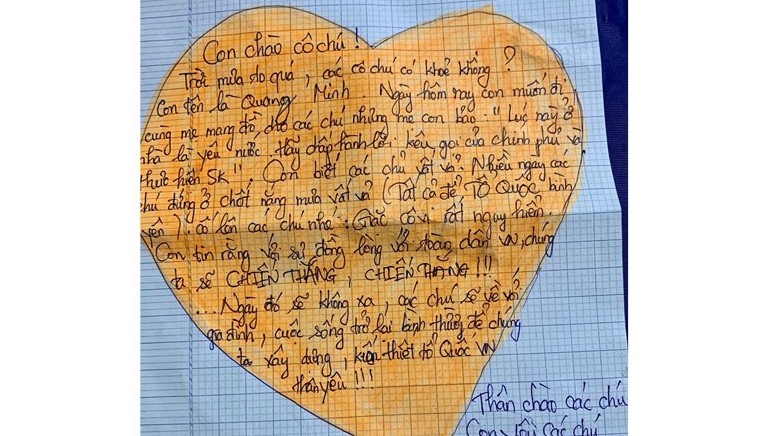 Con chào cô chú !
Trời mưa to quá, các cô chú có khoẻ không ?
Con tên là Quang Minh Ngày hôm nay con muốn đi
cùng mẹ mang đồ cho các chú nhưng mẹ con bảo: "Lúc này ở
nhà là yêu nước. Hãy đáp hành lời kêu gọi của chính phủ và
thực hiện 5K". Con biết các chú vất vả. Nhiều ngay các
chú đứng ở chốt nắng mưa vất vả (Tất cả để TỔ QUỐC bình
yên). cố lên các chú nhé: Giặc cô vi rất nguy hiểm.
Con tin rằng với sự đồng lòng với toàn dân VN, chúng
ta sẽ CHIẾN THẮNG, CHIẾN THẮNG !!!
....Ngày đó sẽ không xa, các chú sẽ về với
gia đình, cuộc sống trở lại bình thường để chúng
ta xây dựng, kiến thiết tổ Quốc VN
thân yêu !!!
Thân chào các chú
Con yêu các chú